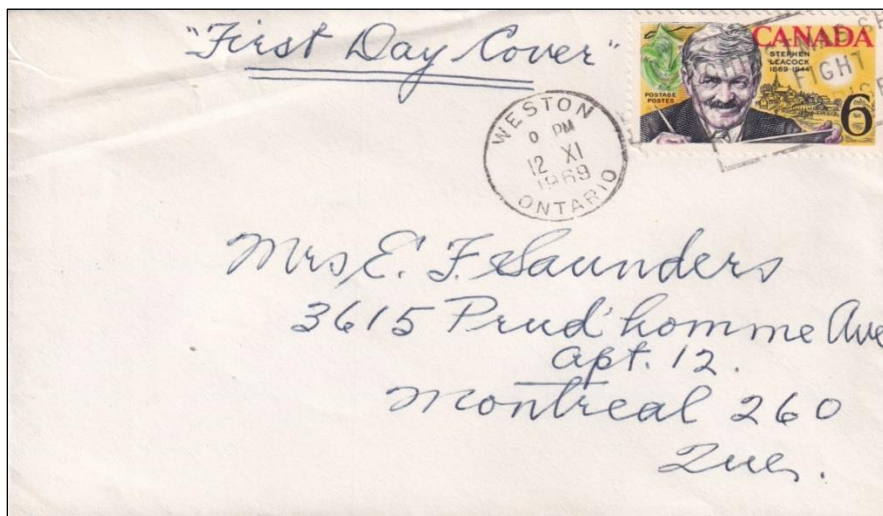 "First Day Cover"
CANADA
STEPHEN
LEACOCK
1869-1944
POSTAGE
POSTES
6
TIGHT
WESTON
PM
12 XI
1969
ONTARIO
Mrs E. F. Saunders
3615 Prud'homme Ave
Apt. 12.
Montreal 260
Que.